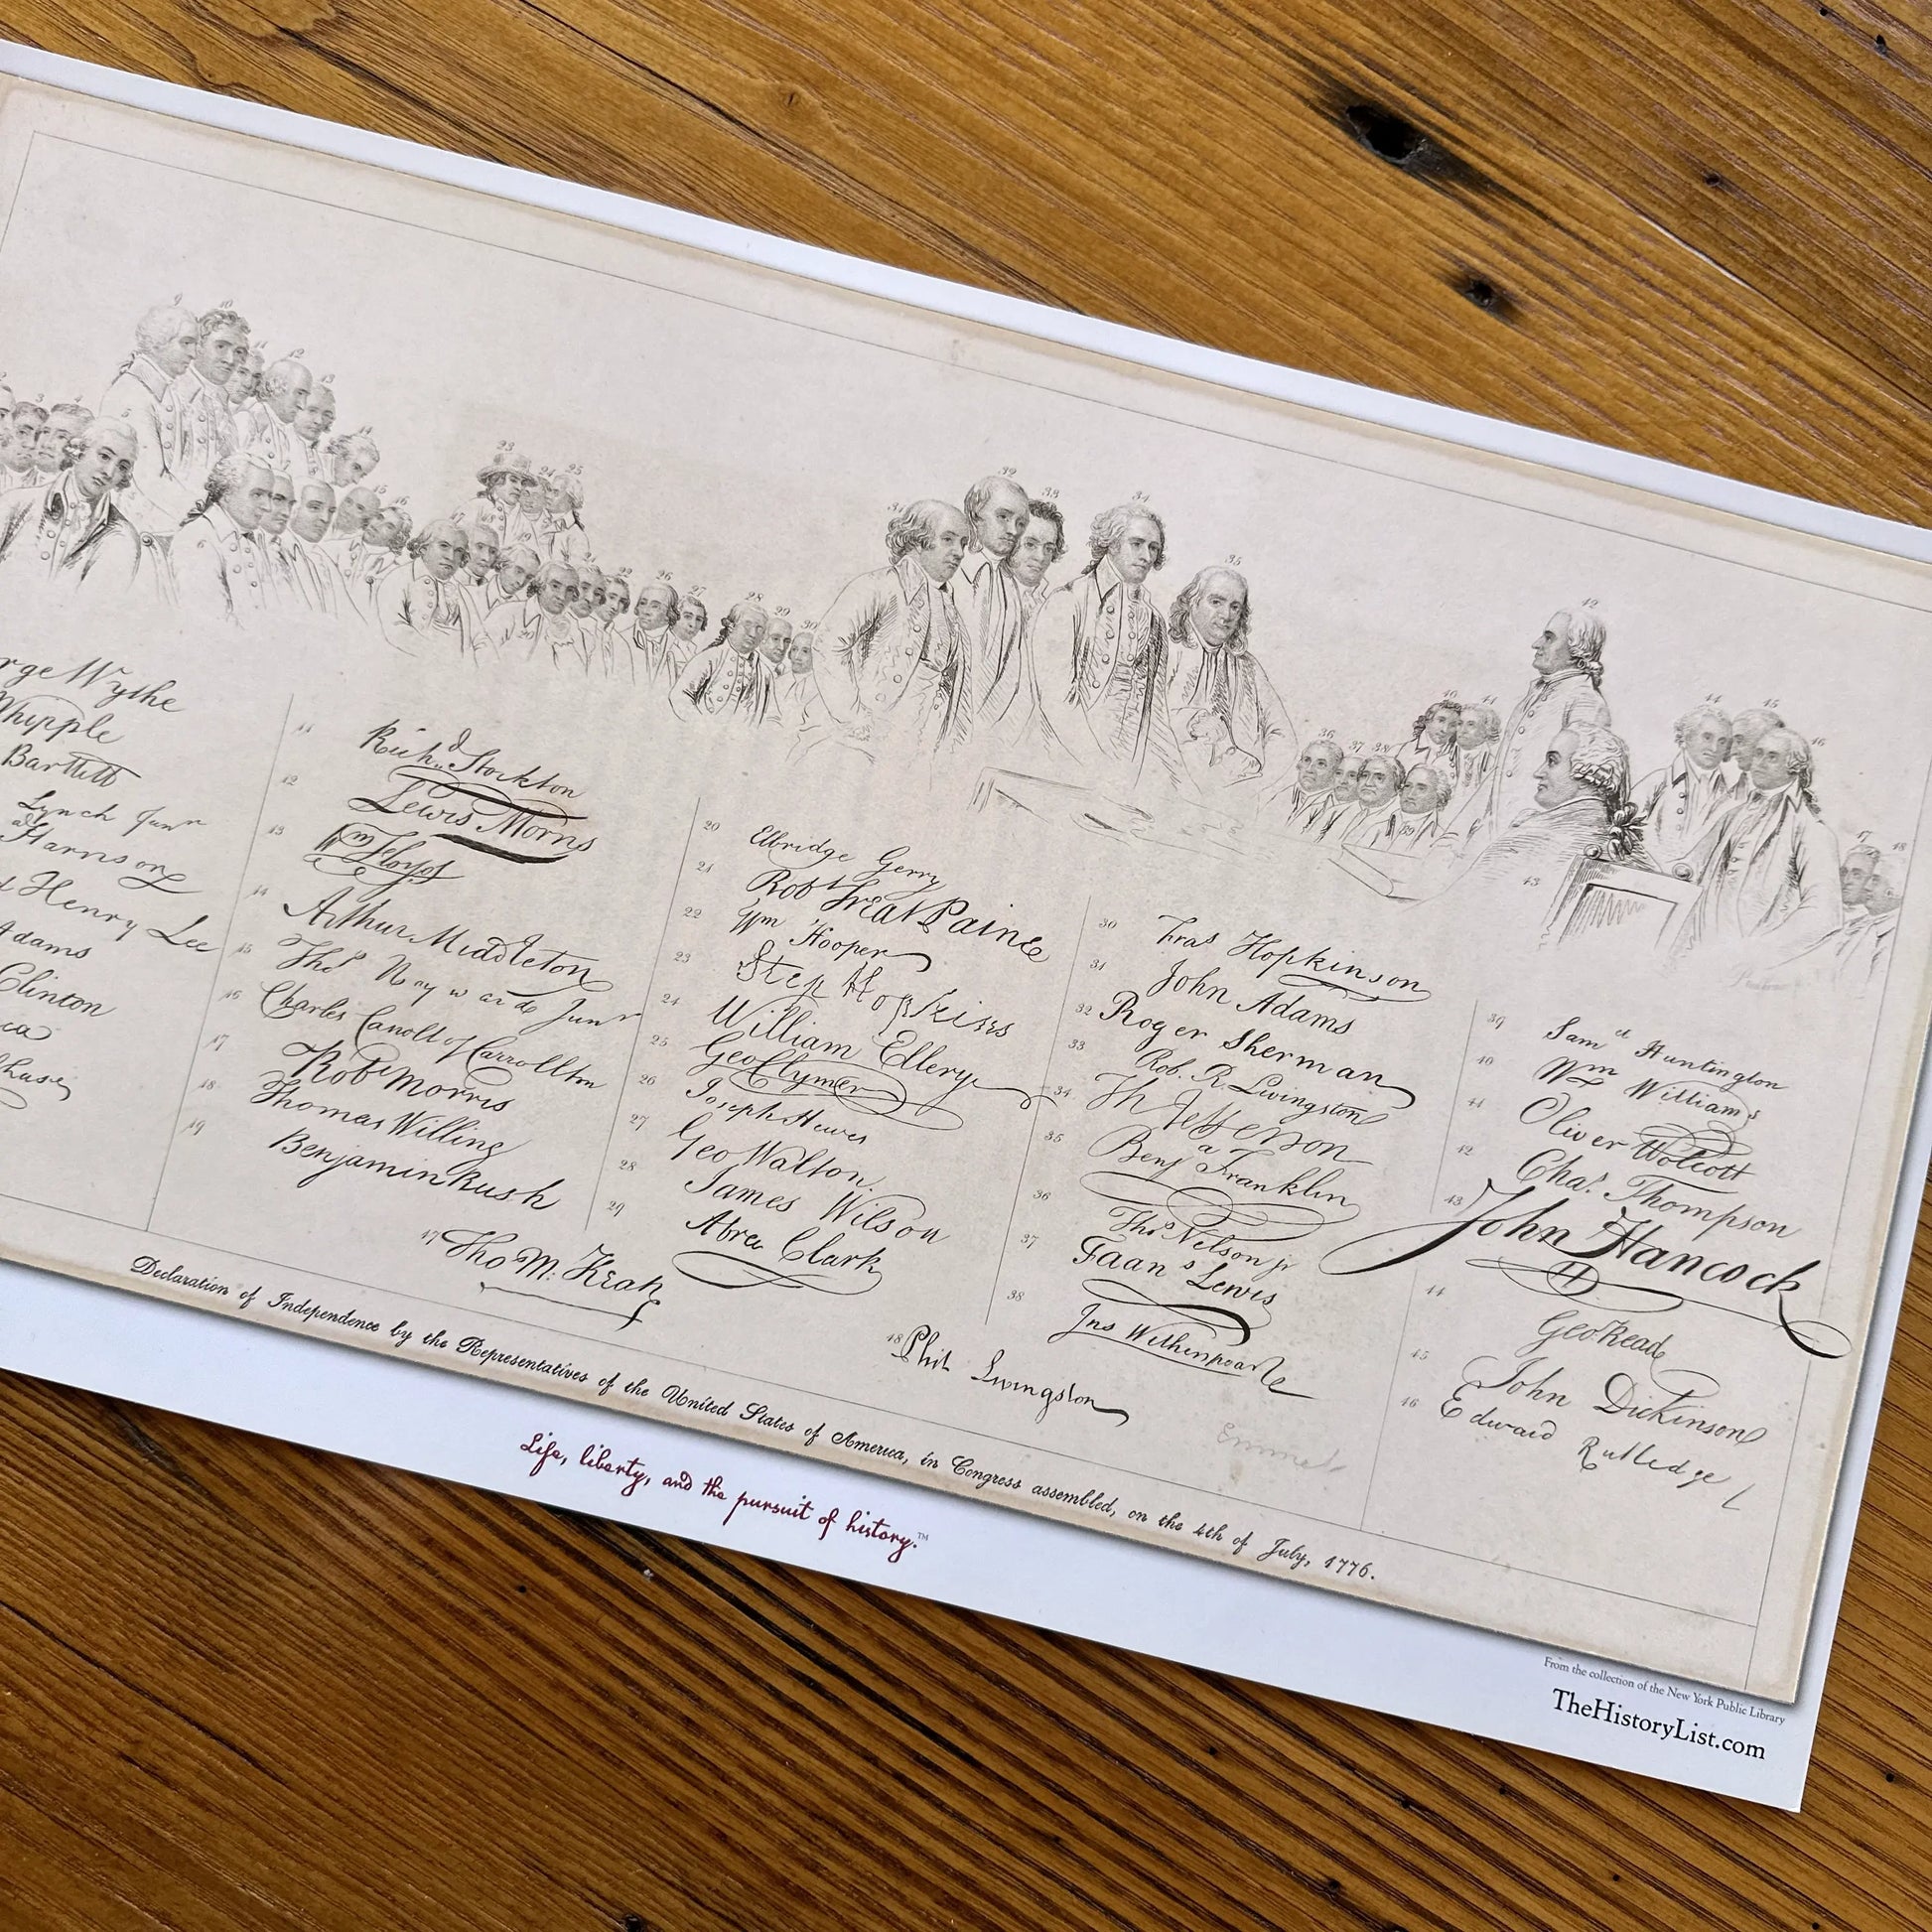 rge Wythe
Whipple
Bartlett
Lynch Junr
Harrison
Henry Lee
Adams
Clinton
ca
Chase
11 Richd. Stockton
12 Lewis Morris
13 Wm Floyd
14 Arthur Middleton
15 Thos Heywarde Junr
16 Charles Carroll of Carrollton
17 Robt Morris
18 Thomas Willing
19 Benjamin Rush
20 Elbridge Gerry
21 Robt Treat Paine
22 Wm Hooper
23 Step Hopkins
24 William Ellery
25 Geo Clymer
26 Joseph Hewes
27 Geo Walton.
28 James Wilson
29 Abra Clark
30 Fras Hopkinson
31 John Adams
32 Roger Sherman
33 Rob. R. Livingston
34 Th Jefferson
35 Benja Franklin
36 Thos Nelson jr
37 Frans Lewis
38 Jno Witherspoon
39 Saml Huntington
40 Wm Williams
41 Oliver Wolcott
42 Chas. Thompson
43 John Hancock
44 Geo Read
45 John Dickinson
46 Edward Rutledge
47 Tho M: Kean
48 Phil Livingston
Emmet
Declaration of Independence by the Representatives of the United States of America, in Congress assembled, on the 4th of July, 1776.
Life, liberty, and the pursuit of history.™
From the collection of the New York Public Library
TheHistoryList.com